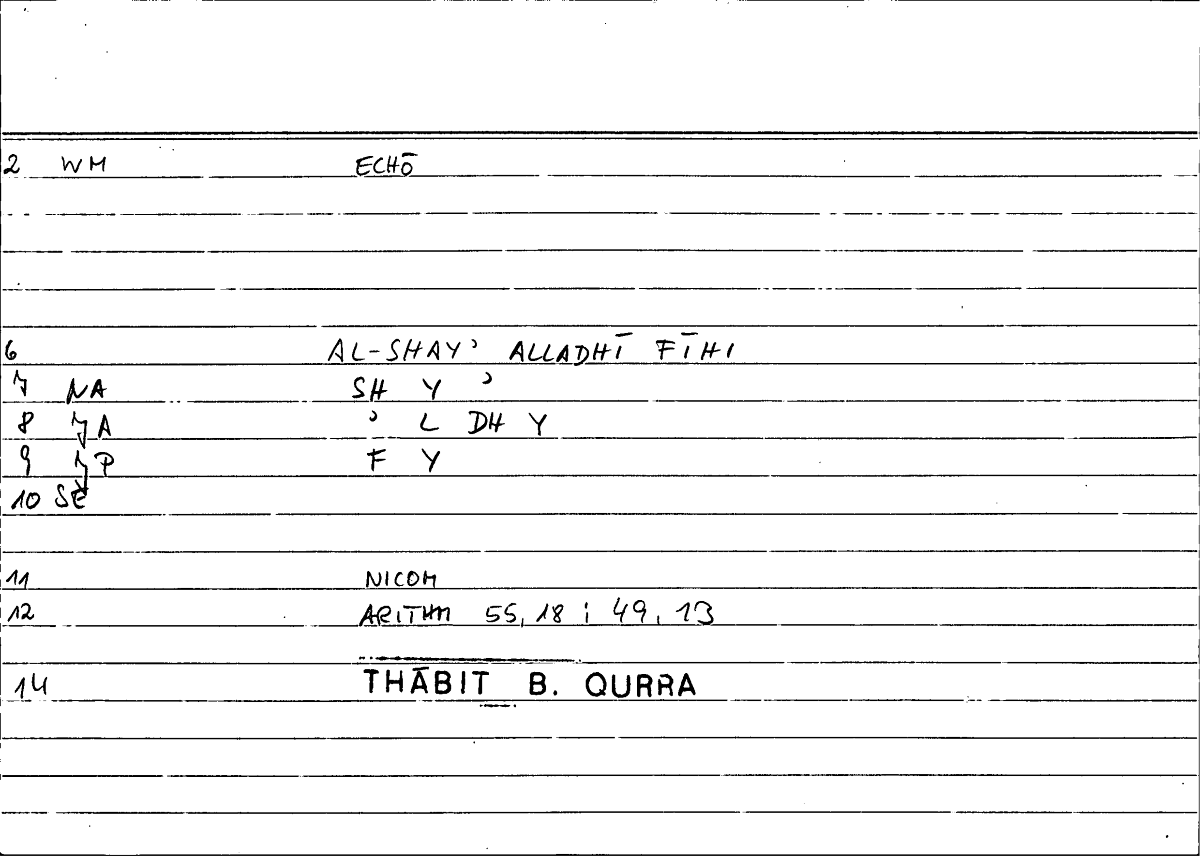 2 WM ECHŌ
6 AL-SHAYʾ ALLADHĪ FĪHI
7 NA SH Y ʾ
8 A ʾ L DH Y
9 P F Y
10 SE
11 NICOM
12 ARITHM 55, 18 ; 49, 13
14 THĀBIT B. QURRA